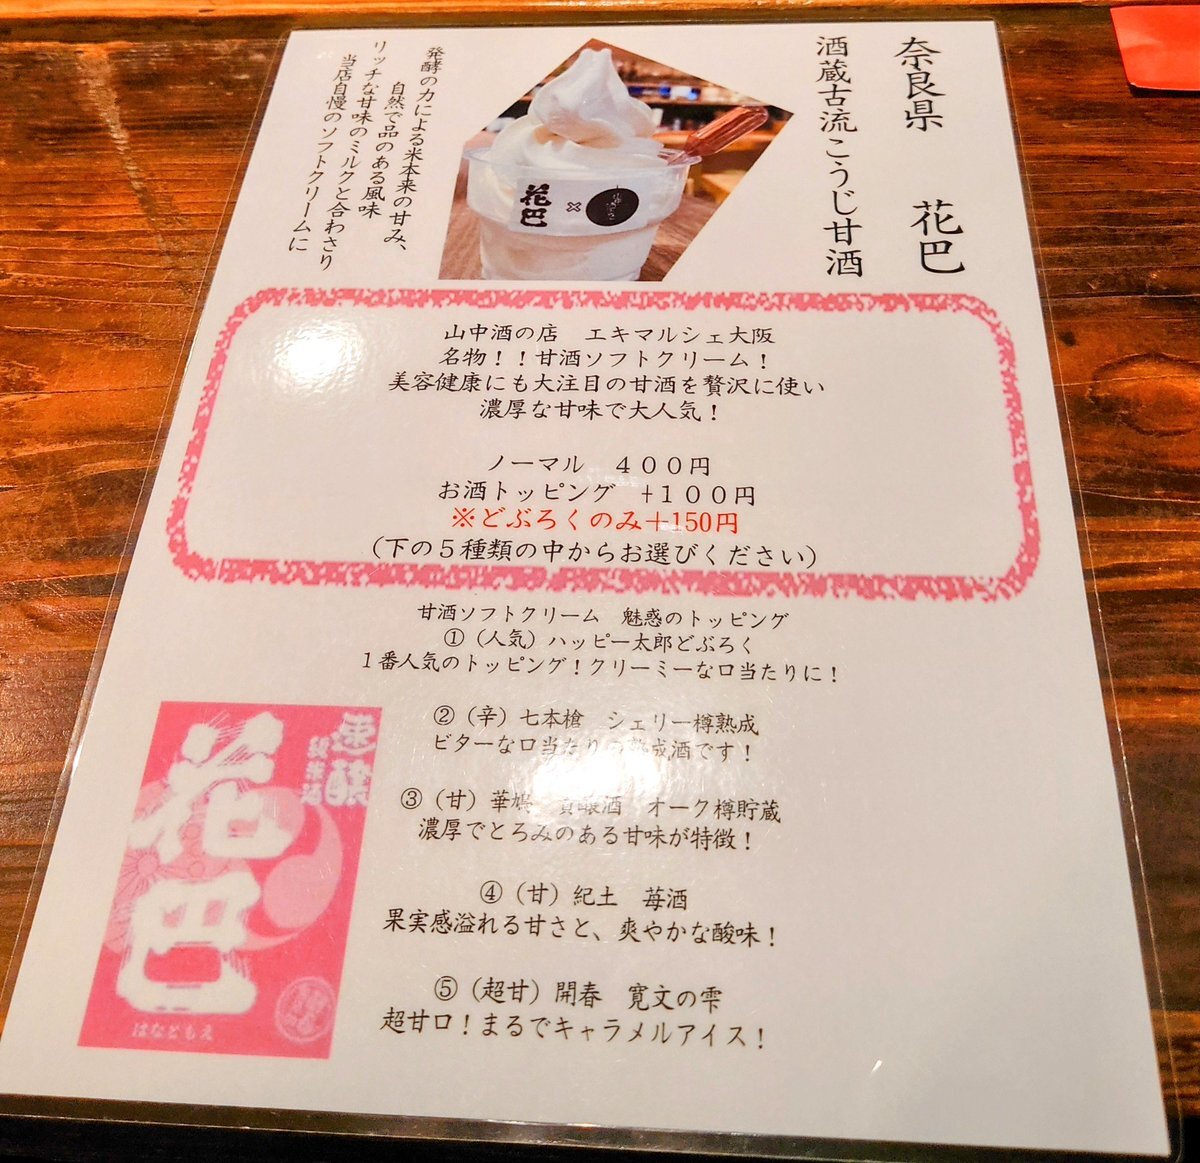 奈良県　花巴
酒蔵古流こうじ甘酒
発酵の力による米本来の甘み、
自然で品のある風味
リッチな甘味のミルクと合わさり
当店自慢のソフトクリームに
花巴 ×
山中酒の店　エキマルシェ大阪
名物！！甘酒ソフトクリーム！
美容健康にも大注目の甘酒を贅沢に使い
濃厚な甘味で大人気！
ノーマル　４００円
お酒トッピング　+１００円
※どぶろくのみ+150円
（下の５種類の中からお選びください）
甘酒ソフトクリーム　魅惑のトッピング
①（人気）ハッピー太郎どぶろく
１番人気のトッピング！クリーミーな口当たりに！
②（辛）七本槍　シェリー樽熟成
ビターな口当たりの熟成酒です！
③（甘）華鳩　貴醸酒　オーク樽貯蔵
濃厚でとろみのある甘味が特徴！
④（甘）紀土　苺酒
果実感溢れる甘さと、爽やかな酸味！
⑤（超甘）開春　寛文の雫
超甘口！まるでキャラメルアイス！
速醸
純米酒
花巴
はなともえ